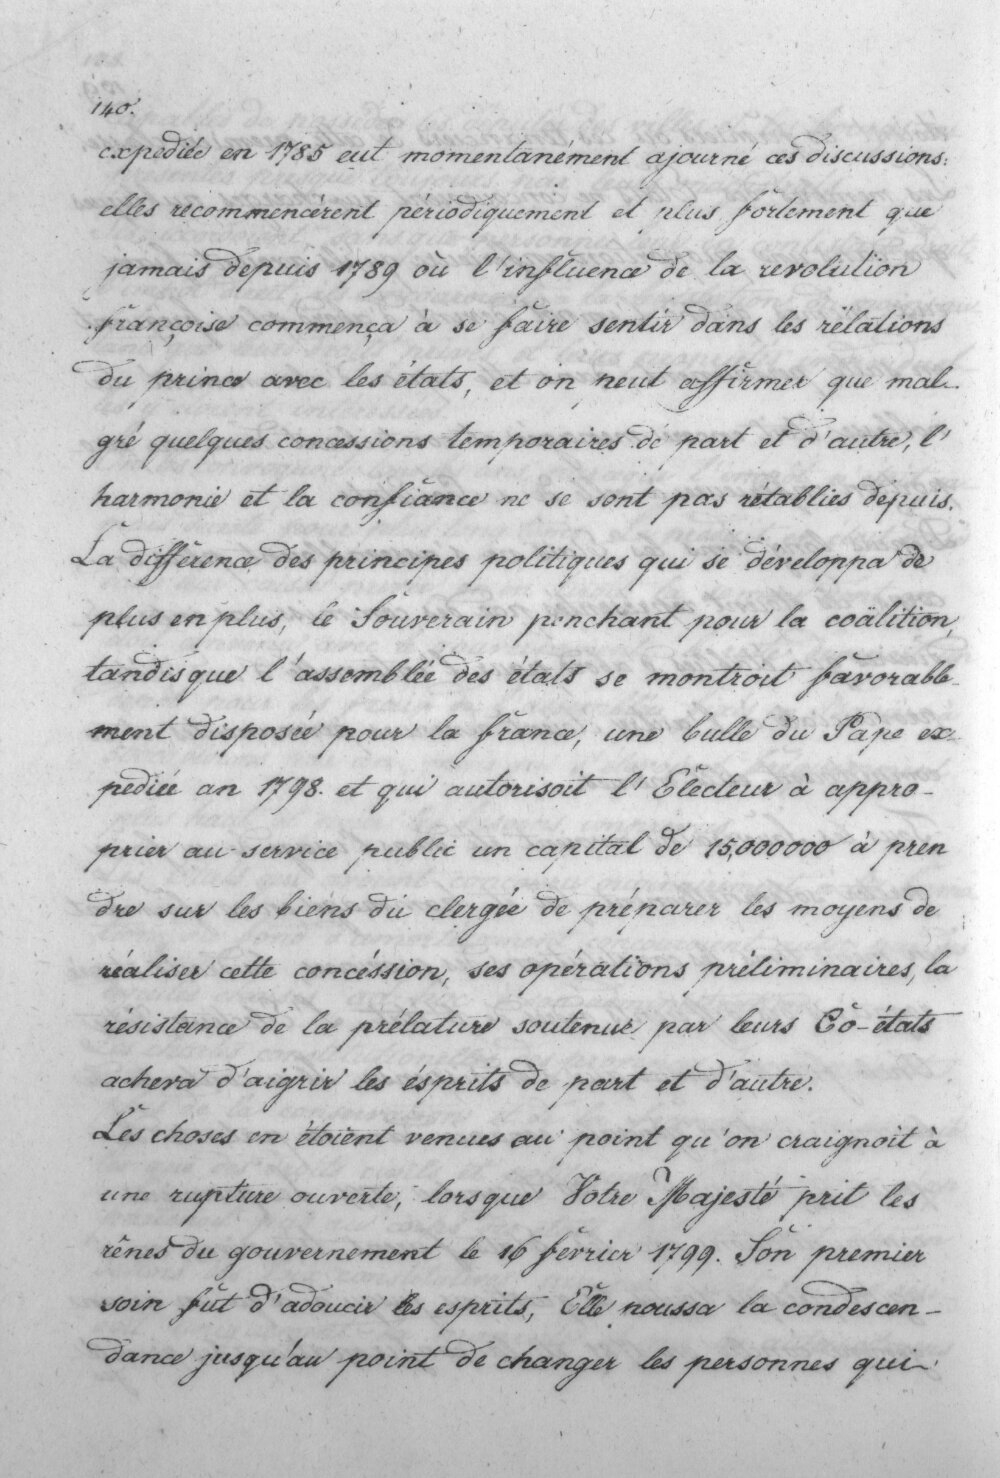 140.
expediée en 1785 eut momentanément ajourné ces discussions:
elles recommencèrent périodiquement et plus fortement que
jamais depuis 1789 où l'influence de la revolution
françoise commença à se faire sentir dans les rélations
du prince avec les états, et on peut affirmer que mal-
gré quelques concessions temporaires de part et d'autre, l'
harmonie et la confiance ne se sont pas rétablies depuis.
La différence des principes politiques qui se développa de
plus en plus, le Souverain penchant pour la coälition,
tandisque l'assemblée des états se montroit favorable-
ment disposée pour la france, une bulle du Pape ex-
pediée an 1798. et qui autorisoit l'Electeur à appro-
prier au service public un capital de 15,000000 à pren
dre sur les biens du clergée de préparer les moyens de
réaliser cette concéssion, ses opérations préliminaires, la
résistance de la prélature soutenue par leurs Co-états
acheva d'aigrir les ésprits de part et d'autre.
Les choses en étoient venues au point qu'on craignoit à
une rupture ouverte, lorsque Votre Majesté prit les
rênes du gouvernement le 16 février 1799. Son premier
soin fut d'adoucir les esprits, Elle poussa la condescen-
dance jusqu'au point de changer les personnes qui